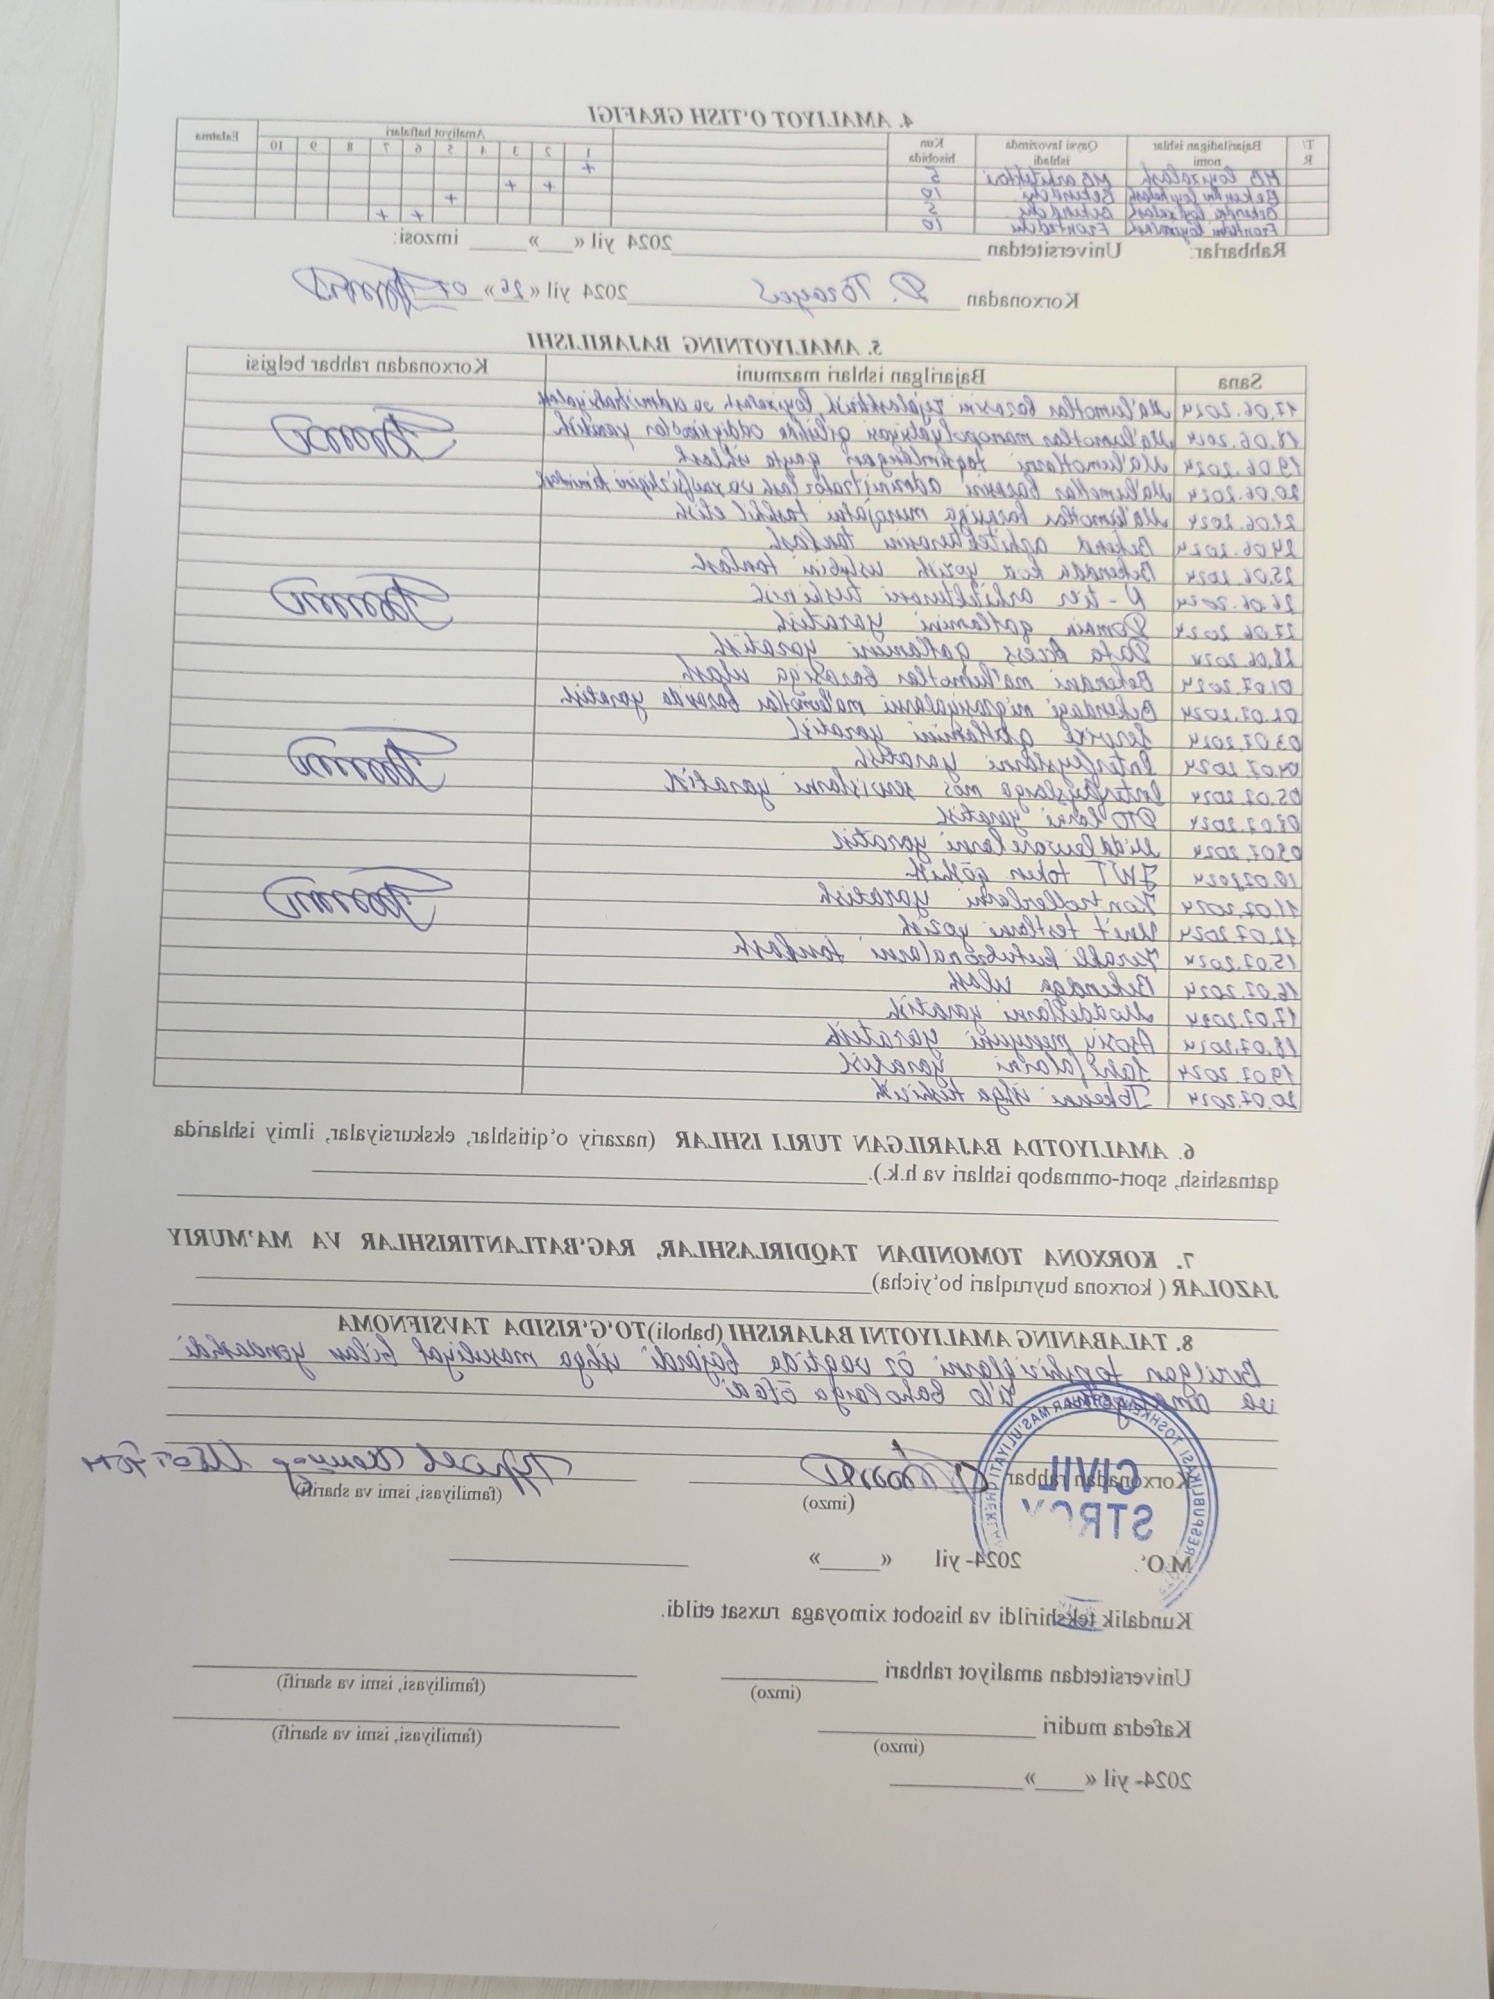 4. AMALIYOT O‘TISH GRAFIGI
T/R Bajariladigan ishlar nomi Qaysi lavozimda ishladi Kun hisobida Amaliyot haftalari Eslatma
1 2 3 4 5 6 7 8 9 10
MB loyixalash MB arxitektori 5 +
Bekendni loyihalash Bekendchi 10 + +
Bekendni loyixalash Bekendchi 5 +
Frontedni loyixalash Frontedchi 10 + +
Rahbarlar: Universitetdan 2024 yil « » imzosi:
Korxonadan D. Tōrayev 2024 yil «26» 07
5. AMALIYOTNING BAJARILISHI
Sana Bajarilgan ishlari mazmuni Korxonadan rahbar belgisi
17.06.2024 Ma'lumotlar bazasini rejalashtirish, loyixalash va administratsiyalash
18.06.2024 Ma'lumotlar manipulyatsiyasi qilishda oddiy yaratish
19.06.2024 Ma'lumotlarni taqsimlangan qayta ishlash
20.06.2024 Ma'lumotlar bazasini administratorlash va xavfsizligini ta'minlash
21.06.2024 Ma'lumotlar bazasiga murojatni tashkil etish
24.06.2024 Bekend arxitekturasini tanlash
25.06.2024 Bekendda kod yozish uslubini tanlash
26.06.2024 N-tier arxitekturani tushinish
27.06.2024 Domain qatlamini yaratish
28.06.2024 Data Access qatlamini yaratish
01.07.2024 Bekendni ma'lumotlar bazasiga ulash
02.07.2024 Bekendagi migratsiyalarni ma'lumotlar bazasida yaratish
03.07.2024 Service qatlamini yaratish
04.07.2024 Interfeyslarni yaratish
05.07.2024 Interfeyslarga mos servislarni yaratish
08.07.2024 DTO larni yaratish
09.07.2024 Middlewarelarni yaratish
10.07.2024 JWT token qōshish
11.07.2024 Kontrollerlarni yaratish
12.07.2024 Unit testlarni yozish
15.07.2024 Kerakli kutubxonalarni tanlash
16.07.2024 Bekendga ulash
17.07.2024 Modellarni yaratish
18.07.2024 Asosiy menyuni yaratish
19.07.2024 Sahifalarni yaratish
20.07.2024 Tokenni ishga tushirish
6. AMALIYOTDA BAJARILGAN TURLI ISHLAR (nazariy o‘qitishlar, ekskursiyalar, ilmiy ishlarida
qatnashish, sport-ommabop ishlari va h.k.).
7. KORXONA TOMONIDAN TAQDIRLASHLAR, RAG‘BATLANTIRISHLAR VA MA’MURIY
JAZOLAR ( korxona buyruqlari bo‘yicha)
8. TALABANING AMALIYOTNI BAJARISHI (baholi)TO‘G‘RISIDA TAVSIFNOMA
Berilgan topshiriqlarni ōz vaqtida bajardi ishga masuliyat bilan yondashdi
va amaliyotni a'lo baholarga ōtadi
Korxonadan rahbar
(imzo) (familiyasi, ismi va sharifi)
CIVIL
M.O‘. 2024- yil « »
Kundalik tekshirildi va hisobot ximoyaga ruxsat etildi.
Universitetdan amaliyot rahbari
(imzo) (familiyasi, ismi va sharifi)
Kafedra mudiri
(imzo) (familiyasi, ismi va sharifi)
2024- yil « »